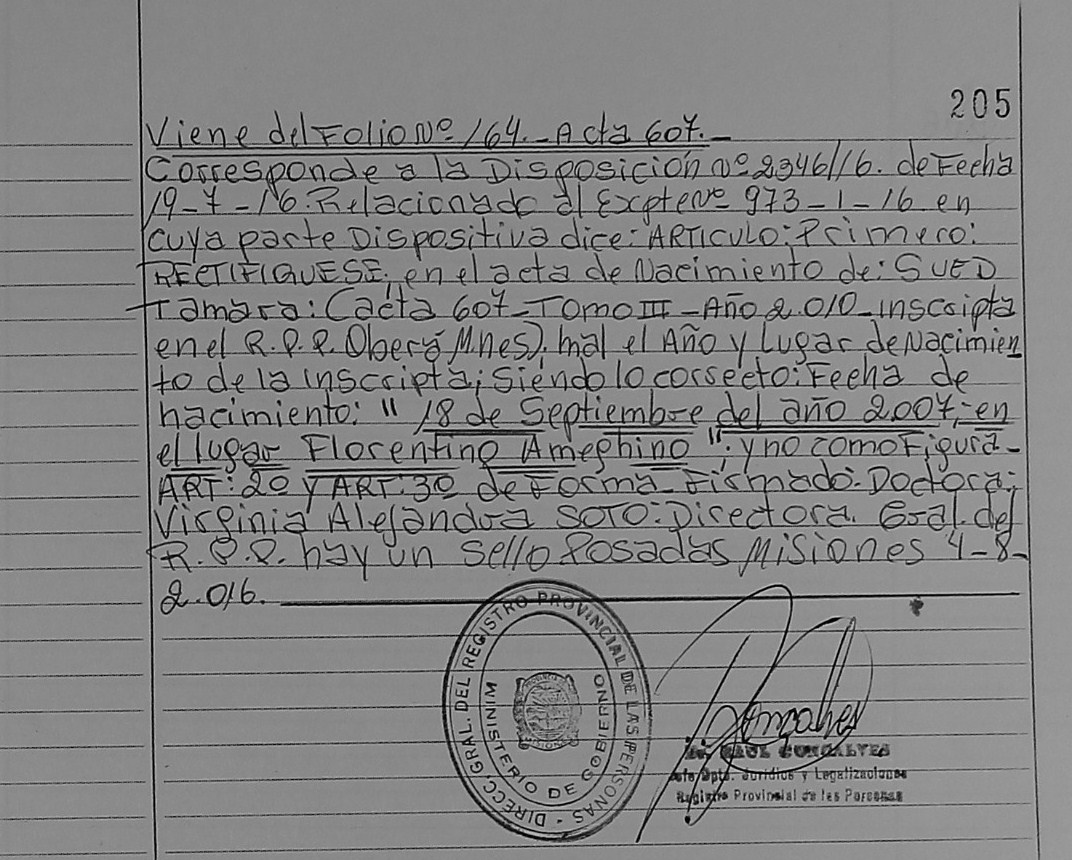 205
Viene del Folio Nº 164._ Acta 607._
Corresponde a la Disposición nº 2346/16. de Fecha
19_7_16. Relacionado al Expte Nº 973_1_16 en
cuya parte Dispositiva dice: ARTICULO: Primero:
RECTIFIQUESE; en el acta de Nacimiento de: SUED
Tamara: (acta 607_Tomo III_Año 2.010_inscripta
en el R.P.P. Oberá Mnes). mal el Año y Lugar de Nacimien
to de la inscripta; Siéndo lo correcto: Fecha de
nacimiento: "18 de Septiembre del año 2007; en
el lugar Florentino Ameghino"; y no como Figura_
ART: 2º y ART: 3º de Forma_Firmado: Doctora:
Virginia Alejandra SOTO: Directora. Gral. del
R.P.P. hay un sello Posadas Misiones 4_8_
2.016.
DIRECC. GRAL. DEL REGISTRO PROVINCIAL DE LAS PERSONAS -
MINISTERIO DE GOBIERNO
Gonçalves
Dr. RAUL GONCALVES
Jefe Dpto. Juridico y Legalizaciones
Registro Provincial de las Personas